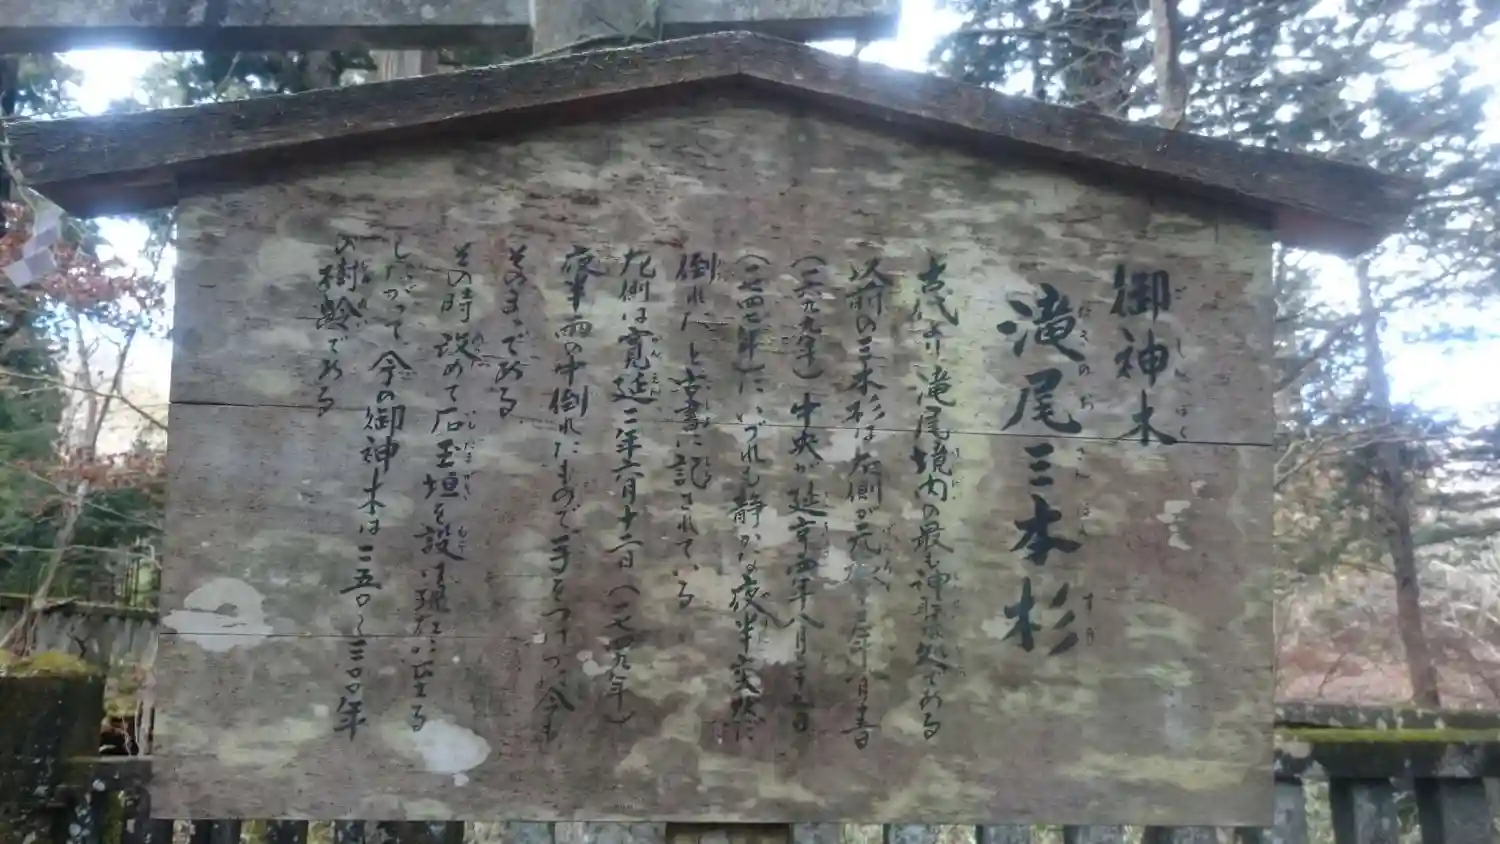 御神木
ごしんぼく
滝尾三本杉
たきのおさんぼんすぎ
古代より滝尾境内の最も神聖な処である
以前の三本杉は右側が元禄十二年
(一六九九年)中央が延享四年八月二十七日
(一七四七年)にいづれも静かな夜半突然に
倒れた と古書に記されている
左側は寛延二年六月十二日(一七四九年)
夜半雨の中倒れたもので手をつけづ今も
そのまゝである
その時 改めて石玉垣を設け現在に至る
したがって 今の御神木は二五〇〜三〇〇年
の樹齢である